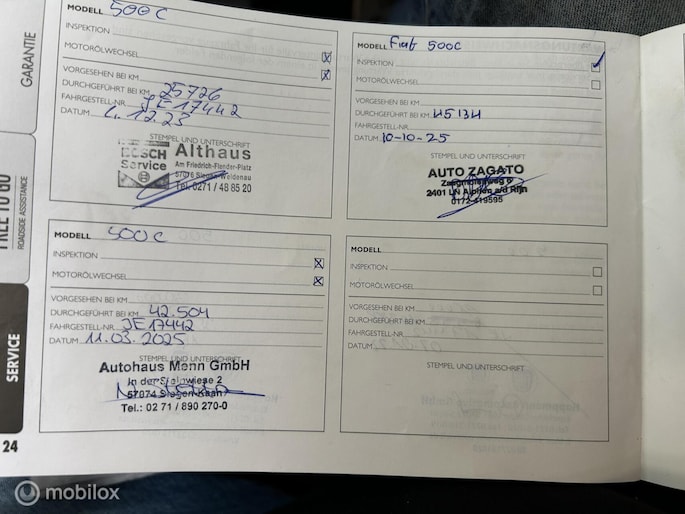 GARANTIE
FREE TO GO
ROADSIDE ASSISTANCE
SERVICE
24
MODELL 500C
INSPEKTION
MOTORÖLWECHSEL
VORGESEHEN BEI KM
DURCHGEFÜHRT BEI KM 25726
FAHRGESTELL-NR. JE17442
DATUM 4.12.23
STEMPEL UND UNTERSCHRIFT
BOSCH
Service
Althaus
Am Friedrich-Flender-Platz
57076 Siegen-Weidenau
Tel. 0271 / 48 85 20
MODELL Fiat 500C
INSPEKTION
MOTORÖLWECHSEL
VORGESEHEN BEI KM
DURCHGEFÜHRT BEI KM 45134
FAHRGESTELL-NR.
DATUM 10-10-25
STEMPEL UND UNTERSCHRIFT
AUTO ZAGATO
2401 LN Alphen a/d Rijn
0172-419595
500C
INSPEKTION
MOTORÖLWECHSEL
VORGESEHEN BEI KM
DURCHGEFÜHRT BEI KM 42.504
FAHRGESTELL-NR. JE17442
DATUM 11.03.2025
STEMPEL UND UNTERSCHRIFT
Autohaus Menn GmbH
In der Steinwiese 2
57074 Siegen-Kaan
Tel.: 02 71 / 890 270-0
MODELL
INSPEKTION
MOTORÖLWECHSEL
VORGESEHEN BEI KM
DURCHGEFÜHRT BEI KM
FAHRGESTELL-NR.
DATUM
STEMPEL UND UNTERSCHRIFT
mobilox